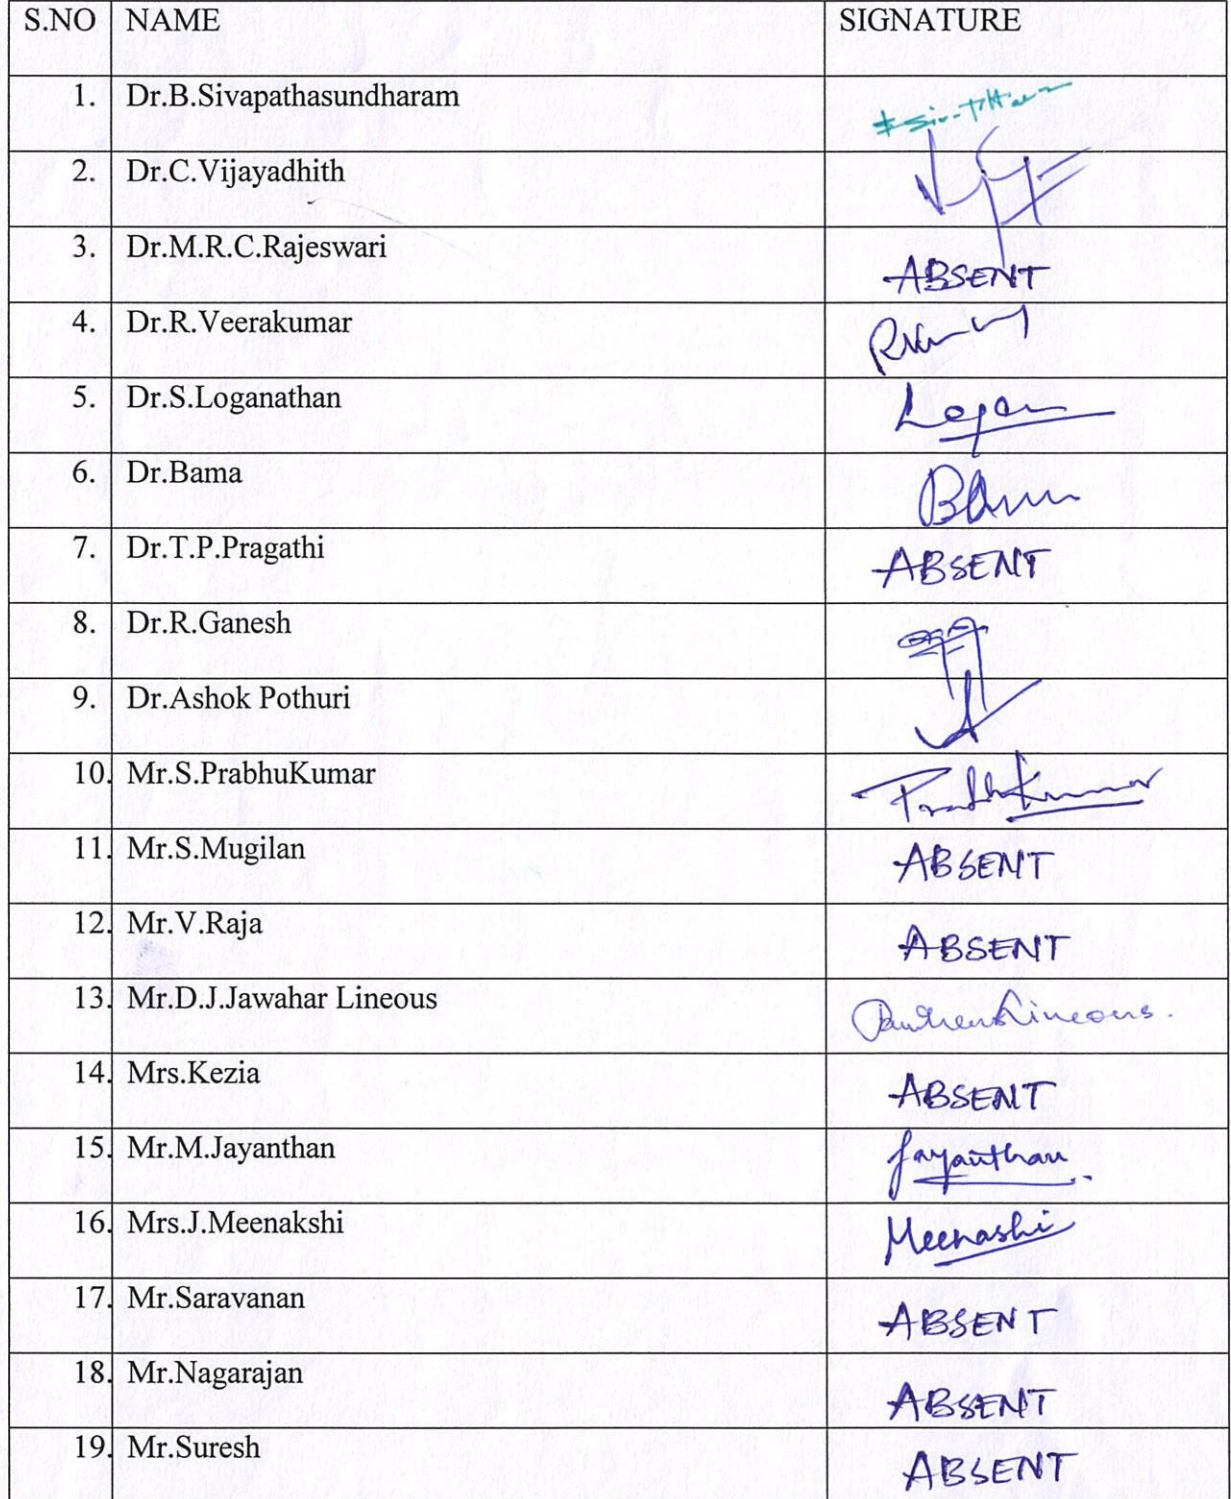 S.NO NAME SIGNATURE
1. Dr.B.Sivapathasundharam
2. Dr.C.Vijayadhith
3. Dr.M.R.C.Rajeswari ABSENT
4. Dr.R.Veerakumar
5. Dr.S.Loganathan Logan
6. Dr.Bama
7. Dr.T.P.Pragathi ABSENT
8. Dr.R.Ganesh
9. Dr.Ashok Pothuri
10. Mr.S.PrabhuKumar PrabhKumar
11. Mr.S.Mugilan ABSENT
12. Mr.V.Raja ABSENT
13. Mr.D.J.Jawahar Lineous
14. Mrs.Kezia ABSENT
15. Mr.M.Jayanthan Jayanthan.
16. Mrs.J.Meenakshi Meenashi
17. Mr.Saravanan ABSENT
18. Mr.Nagarajan ABSENT
19. Mr.Suresh ABSENT